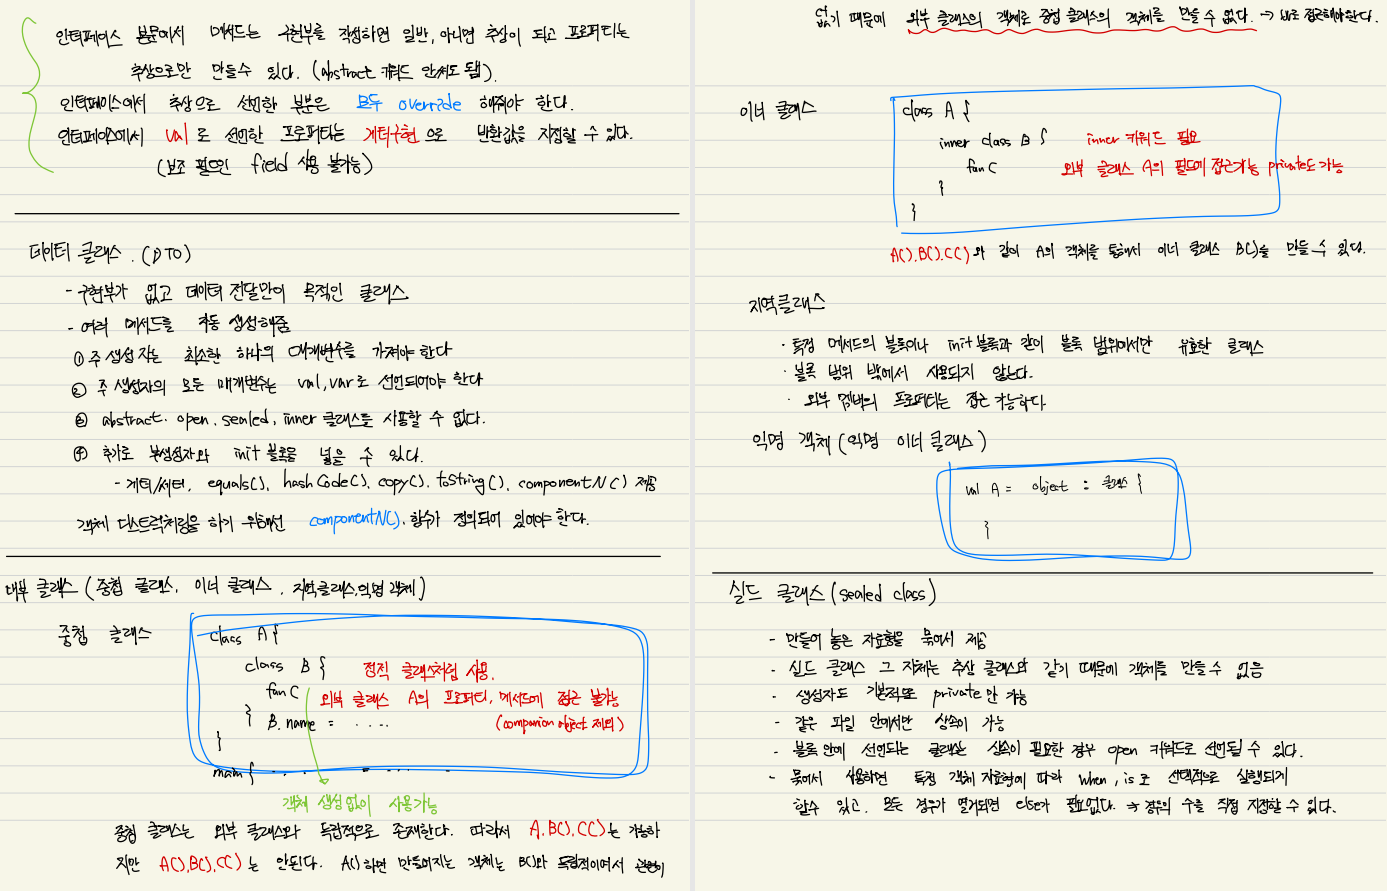 인터페이스 본문에서 메서드는 구현부를 작성하면 일반, 아니면 추상이 되고 프로퍼티는
추상으로만 만들수 있다. (abstract 키워드 안써도 됨).
인터페이스에서 추상으로 선언한 본문은 모두 override 해줘야 한다.
인터페이스에서 val로 선언한 프로퍼티는 게터구현으로 반환값을 지정할 수 있다.
(보조 필드인 field 사용 불가능)
데이터 클래스. (DTO)
- 구현부가 없고 데이터 전달만이 목적인 클래스
- 여러 메서드를 자동 생성해줌
① 주 생성자는 최소한 하나의 매개변수를 가져야 한다
② 주 생성자의 모든 매개변수는 val, var로 선언되어야 한다
③ abstract. open. sealed, inner 클래스를 사용할 수 없다.
④ 추가로 부생성자와 init 블록을 넣을 수 있다.
- 게터/세터, equals(), hashCode(), copy(), toString(), componentN() 제공
객체 디스트럭처링을 하기 위해선 componentN(). 함수가 정의되어 있어야 한다.
내부 클래스 (중첩 클래스, 이너 클래스, 지역클래스, 익명 객체)
중첩 클래스
class A {
class B { 정적 클래스처럼 사용.
fun C 외부 클래스 A의 프로퍼티, 메서드에 접근 불가능
} B.name = .... (companion object 제외)
}
main {
객체 생성없이 사용가능
중첩 클래스는 외부 클래스와 독립적으로 존재한다. 따라서 A.B().C()는 가능하
지만 A().B().C()는 안된다. A()하면 만들어지는 객체는 B()와 독립적이여서 관련이
없기 때문에 외부 클래스의 객체로 중첩 클래스의 객체를 만들 수 없다. → 바로 접근해야한다.
이너 클래스
class A {
inner class B { inner 키워드 필요
fun C 외부 클래스 A의 필드에 접근가능 private도 가능
}
}
A().B().C()와 같이 A의 객체를 통해서 이너 클래스 B()를 만들 수 있다.
지역클래스
· 특정 메서드의 블록이나 init 블록과 같이 블록 범위에서만 유효한 클래스
· 블록 범위 밖에서 사용되지 않는다.
· 외부 멤버의 프로퍼티는 접근 가능하다.
익명 객체 (익명 이너 클래스)
val A = object : 클래스 {
}
실드 클래스 (sealed class)
- 만들어 놓은 자료형을 묶어서 제공
- 실드 클래스 그 자체는 추상 클래스와 같기 때문에 객체를 만들 수 없음
- 생성자도 기본적으로 private만 가능
- 같은 파일 안에서만 상속이 가능
- 블록 안에 선언되는 클래스는 상속이 필요한 경우 open 키워드로 선언될 수 있다.
- 묶어서 사용하면 특정 객체 자료형에 따라 when, is로 선택적으로 실행되게
할수 있고. 모든 경우가 열거되면 else가 필요없다. → 경우의 수를 직접 지정할 수 있다.